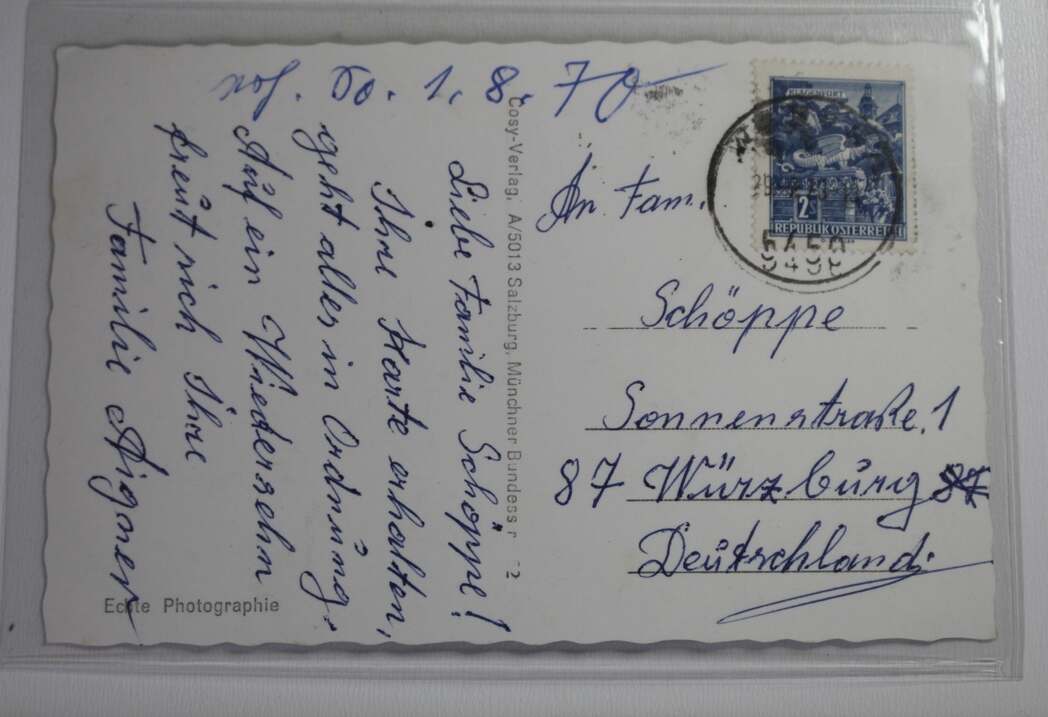 Sa. 1. 8. 70
Liebe Familie Schöppe!
Ihre Karte erhalten,
geht alles in Ordnung.
Auf ein Wiedersehn
freut sich Ihre
Familie Aigner
Echte Photographie
Cosy-Verlag, A/5013 Salzburg, Münchner Bundess
KLAGENFURT
2S
REPUBLIK ÖSTERREICH
An Fam.
Schöppe
Sonnenstraße 1
87 Würzburg
Deutschland.